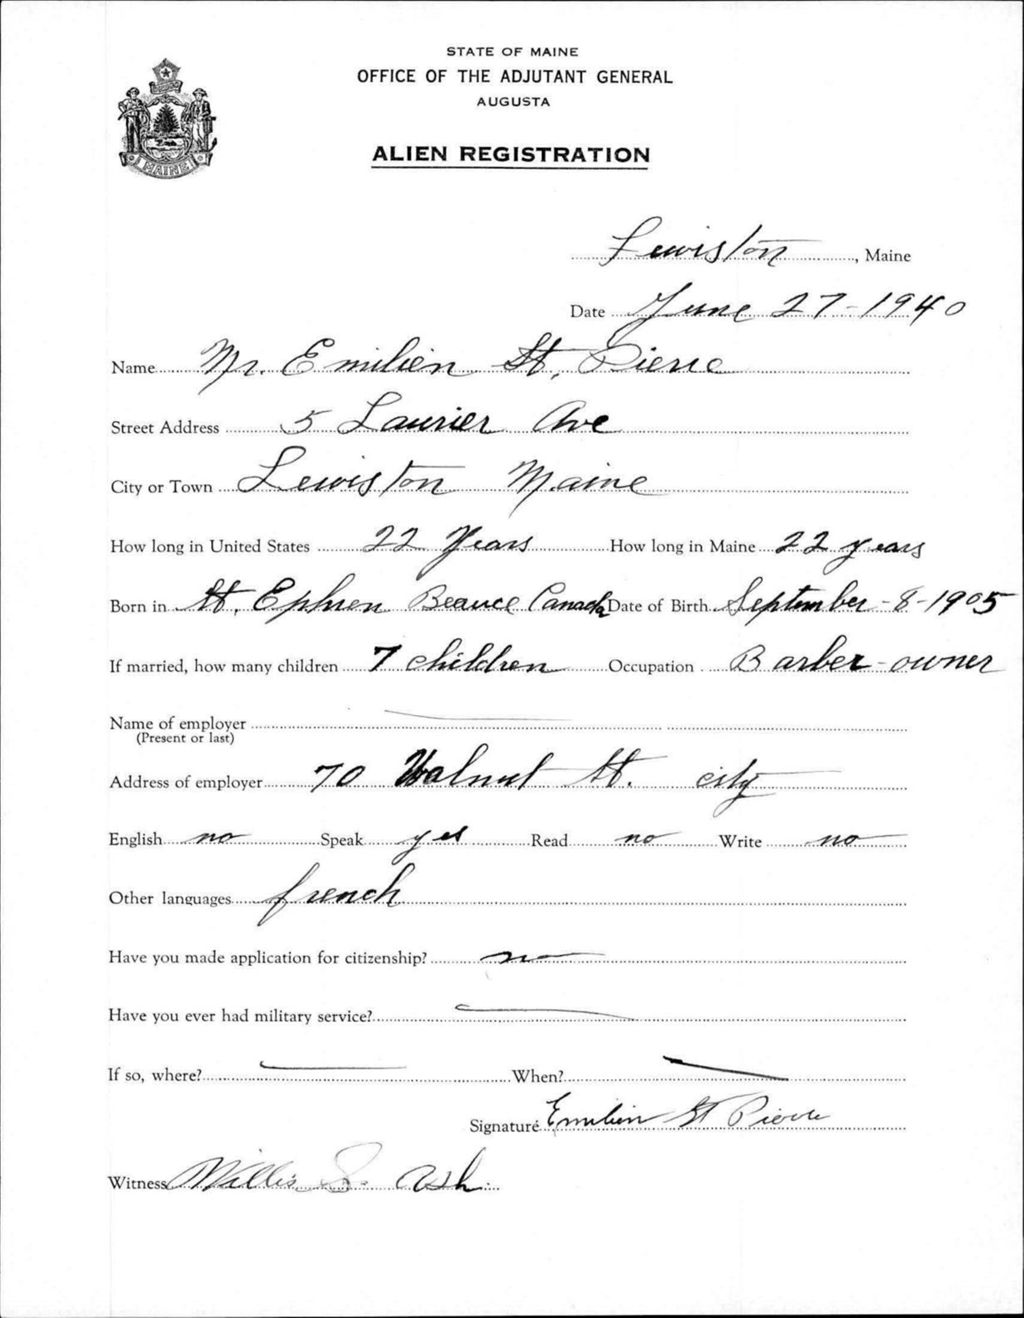 STATE OF MAINE
OFFICE OF THE ADJUTANT GENERAL
AUGUSTA
ALIEN REGISTRATION
MAINE
Lewiston, Maine
Date June 27-1940
Name Mr. Emilien St. Pierre
Street Address 5 Laurier Ave
City or Town Lewiston Maine
How long in United States 22 Years How long in Maine 22 years
Born in St. Ephren Beauce Canada Date of Birth September-8-1905
If married, how many children 7 children Occupation Barber-owner
Name of employer
(Present or last)
Address of employer 70 Walnut St. city
English no Speak yes Read no Write no
Other languages french
Have you made application for citizenship? no
Have you ever had military service?
If so, where? When?
Signature Emilien St Pierre
Witness Willis S. Ash